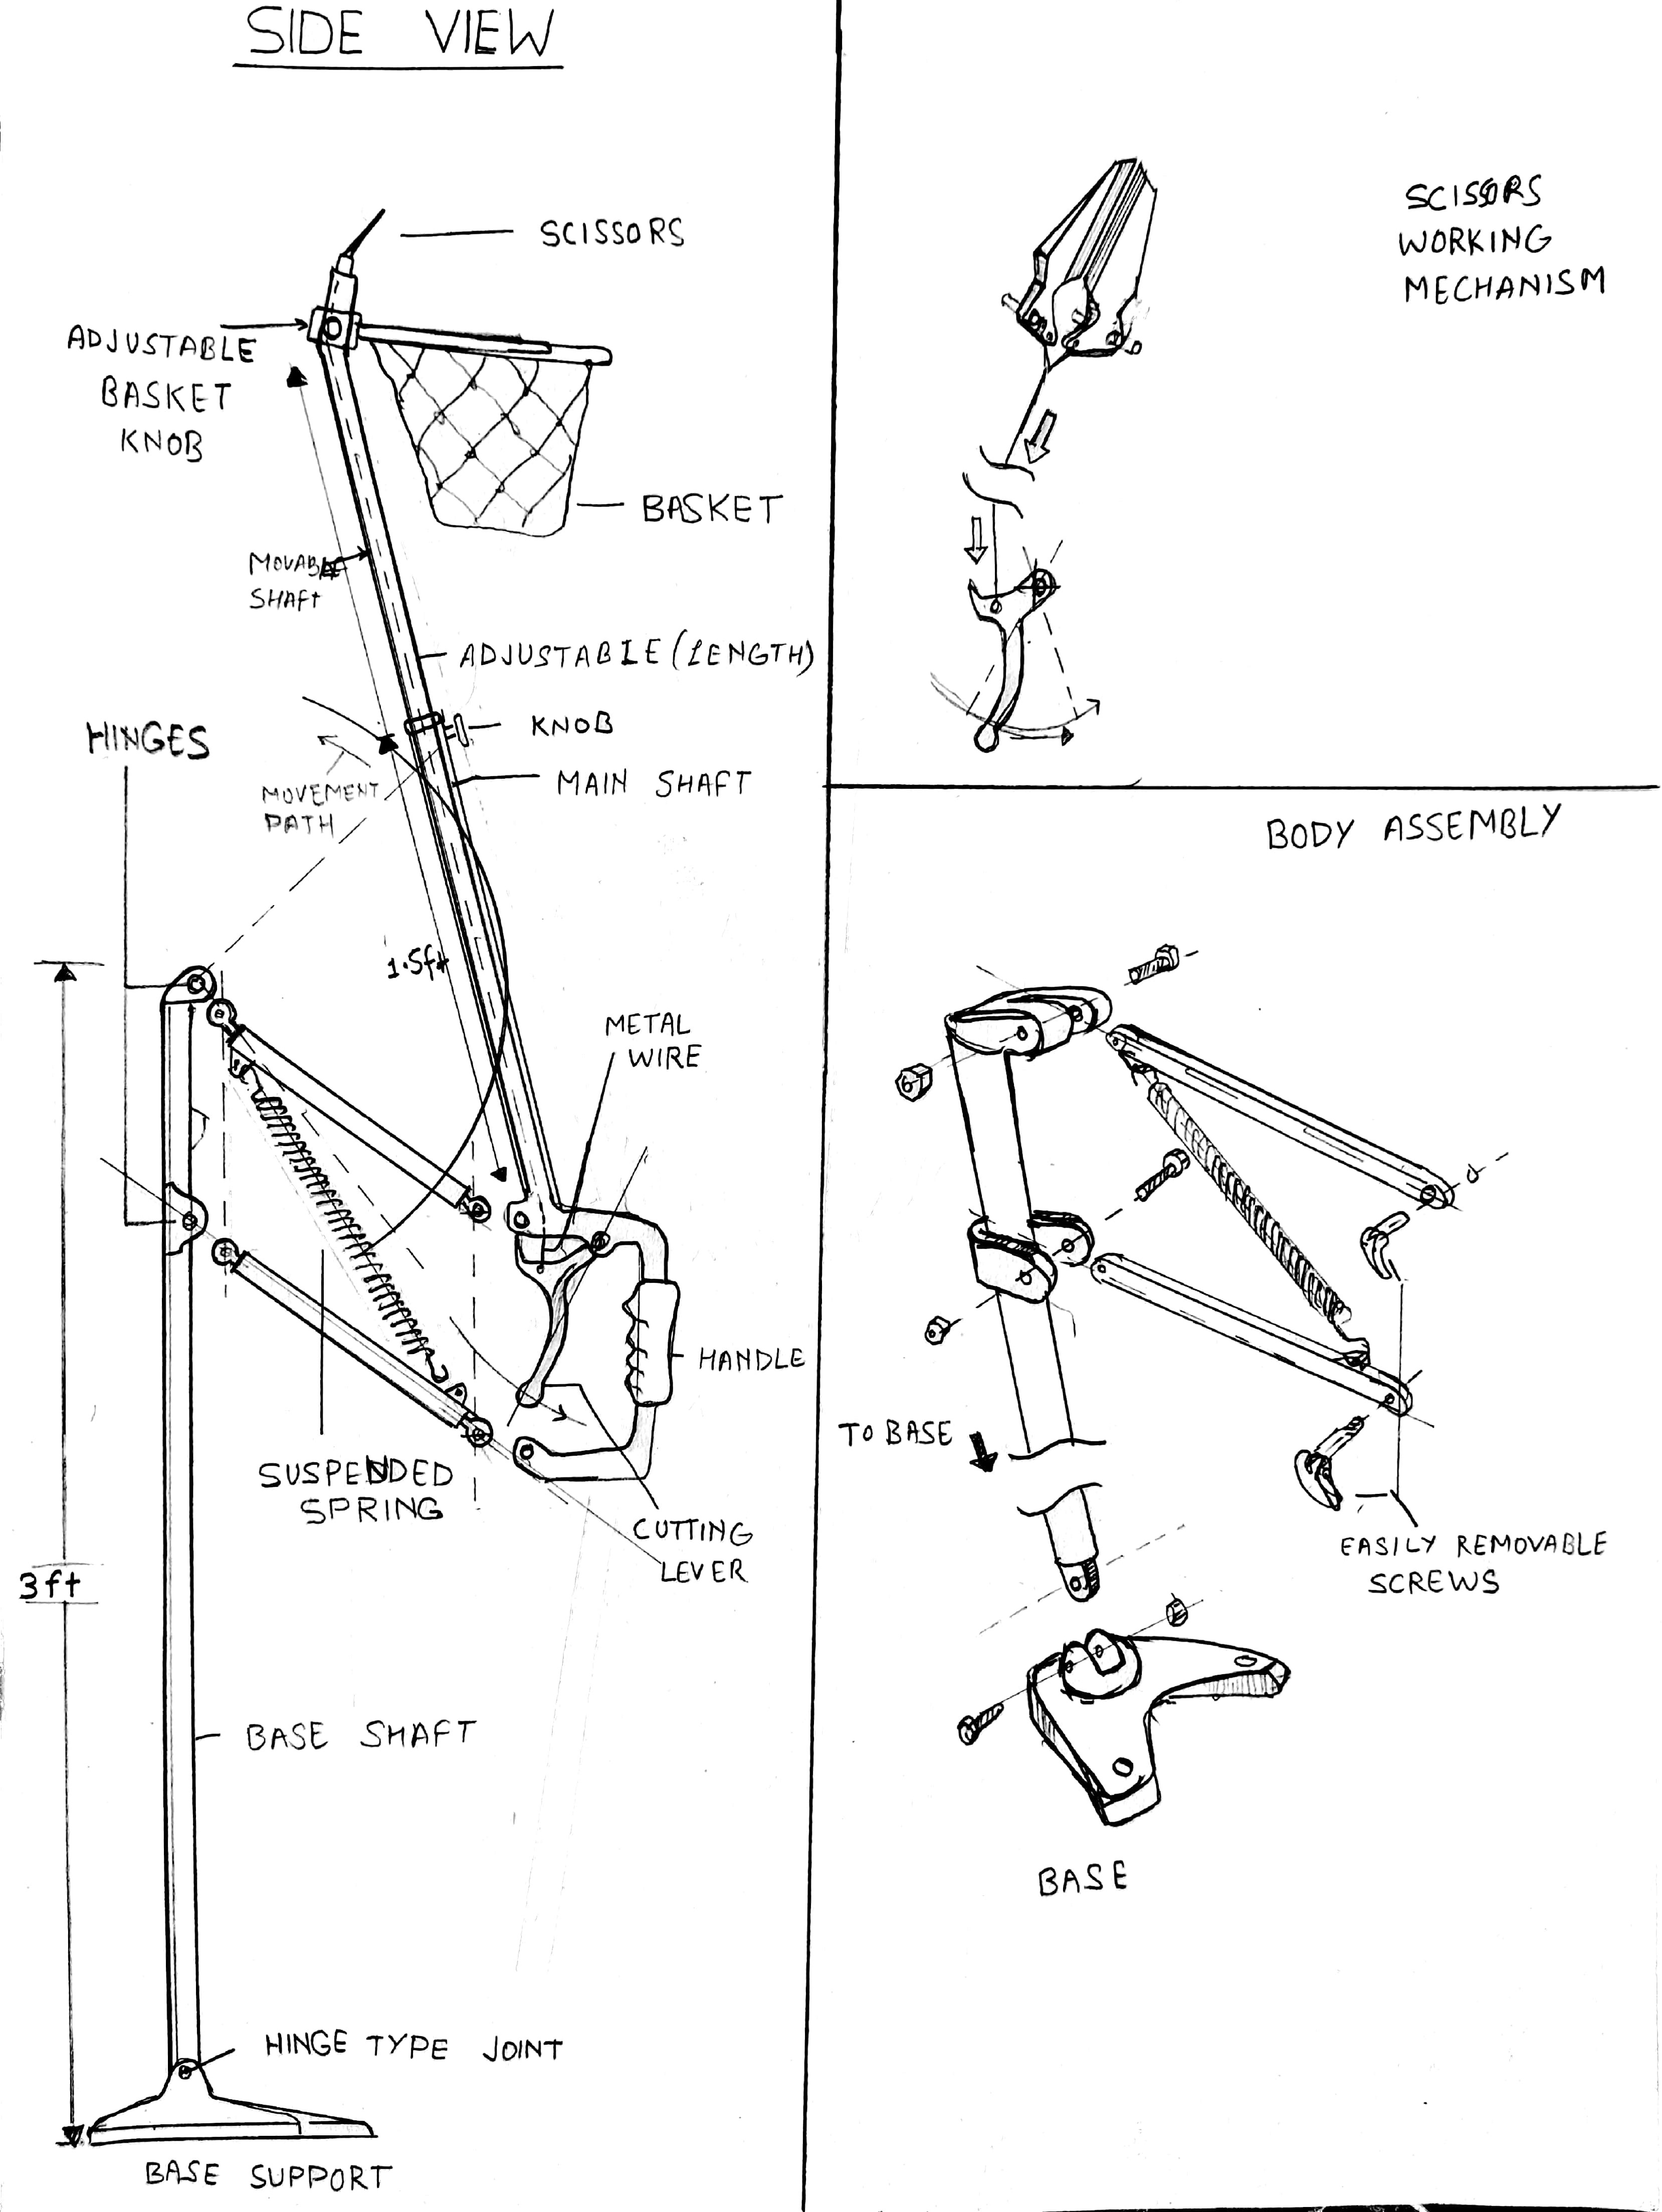 SIDE VIEW
SCISSORS
ADJUSTABLE
BASKET
KNOB
BASKET
MOVABLE
SHAFT
ADJUSTABLE (LENGTH)
KNOB
HINGES
MAIN SHAFT
MOVEMENT
PATH
1.5ft
METAL
WIRE
HANDLE
SUSPENDED
SPRING
CUTTING
LEVER
3ft
BASE SHAFT
HINGE TYPE JOINT
BASE SUPPORT
SCISSORS
WORKING
MECHANISM
BODY ASSEMBLY
TO BASE
EASILY REMOVABLE
SCREWS
BASE